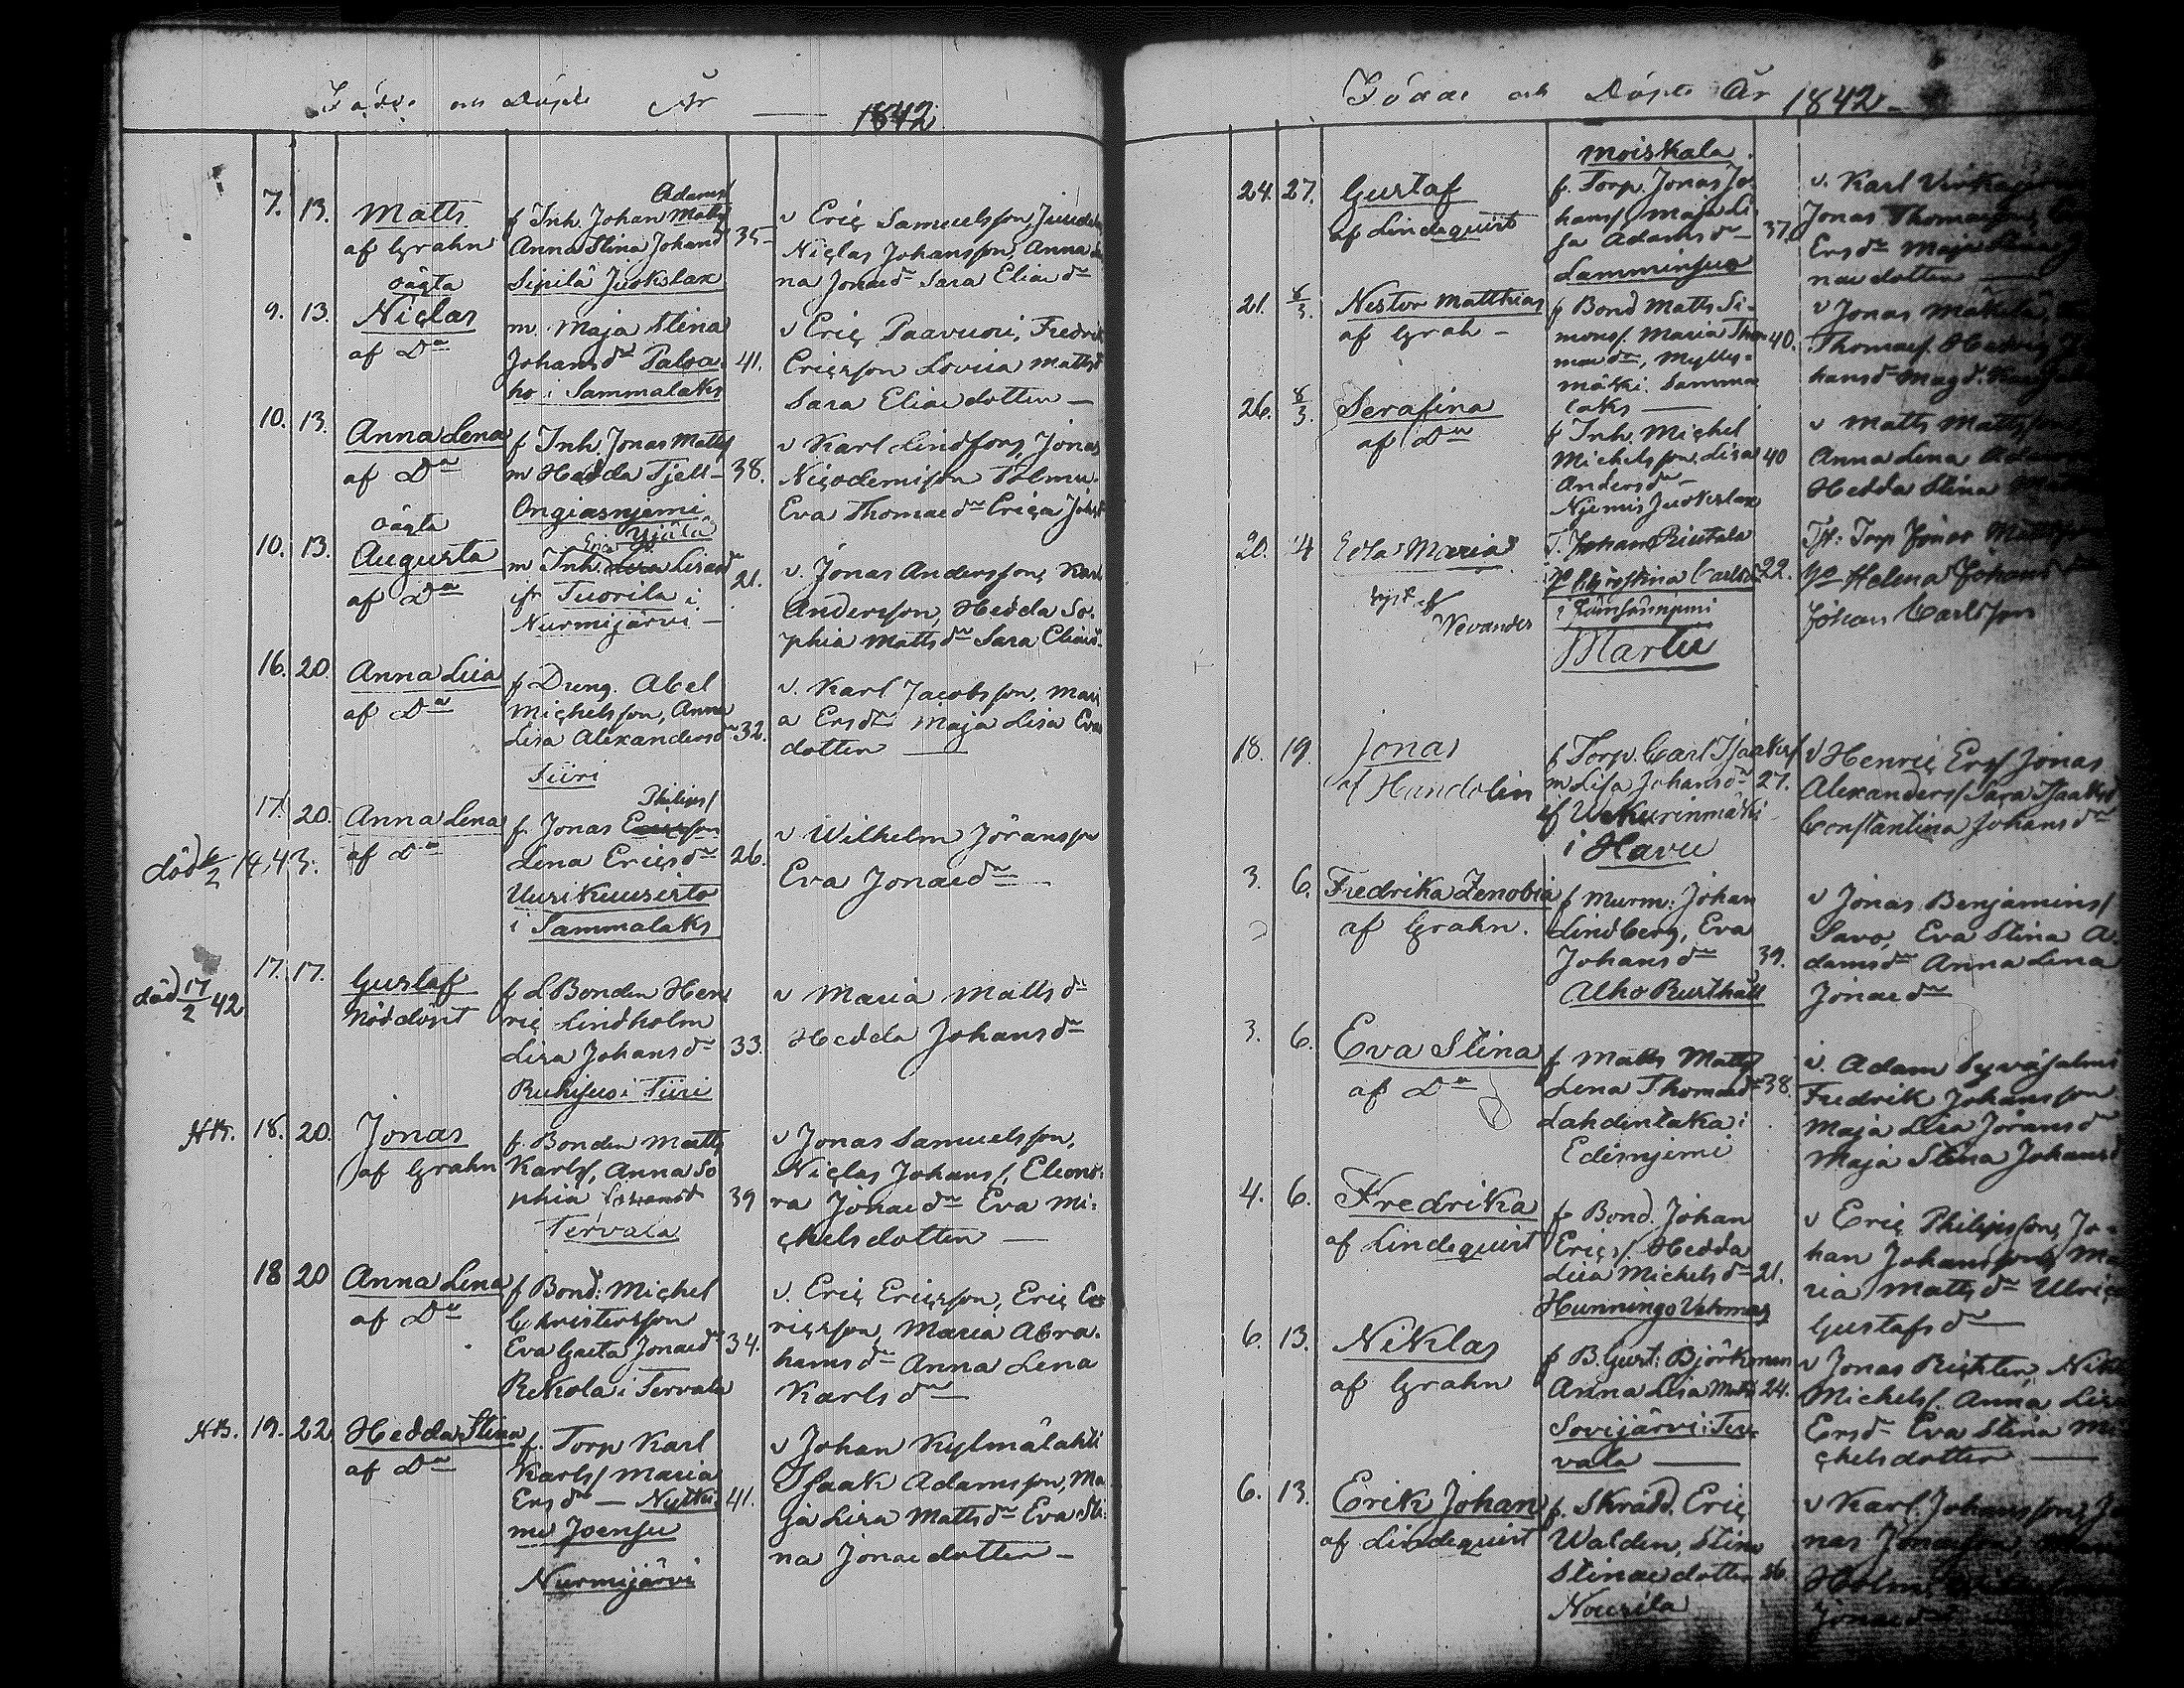 Födde och Döpte År — 1842
7. 13. Matts
af Grahn
f Inh. Johan Matts/ Adams/
Anna Stina Johansd 35
Sipilä Juokslax
v Eric Samuelsson,
Niclas Johansson, Anna
na Jonaedr Sara Eliaedr
oägta
9. 13. Niclas
af Do
m. Maja Stina
Johansdr Paloa- 41.
ho i Sammalaks
v Eric Paavuori, Fredrik
Ericsson Lovisa Mattsd
Sara Eliaedotter —
10. 13. Anna Lena
af Do
f Inh. Jonas Matts/
m Hedda Tjell- 38.
Ongiasnjemi
v Karl Lindfors, Jonas
Nicodemisson Tolmu.
Eva Thomaedr Erica Johsd
oägta
10. 13. Augusta
af Do
Yjälä
m Inh. Lisa 21.
ifr Tuorila i
Nurmijärvi —
v. Jonas Andersson, Karl
Andersson, Hedda So-
phia Mattsdr Sara Eliaed.
16. 20. Anna Lisa
af Do
f Dreng. Abel
Michelsson, Anna
Lisa Alexandersdr 32.
Tiiri
v. Karl Jacobsson, Mari
a Ersdr Maja Lisa Eva
dotter —
17. 20. Anna Lena
af Do
död 14,43.
f. Jonas Ericsson Philips/
Lena Ericsdr 26.
Uusikuusisto
i Sammalaks
v Wilhelm Jöransson
Eva Jonaedr —
17. 17. Gustaf
Nöddöpt
död 17/2 42
f LBonden Hen
ric Lindholm
Lisa Johansdr 33.
Ruhisuo i Tiiri
v Maria Mattsdr
Hedda Johansdr
NB. 18. 20. Jonas
af Grahn
f. Bonden Matts
Karls/, Anna So
phia 39
Tervala
v Jonas Samuelsson,
Niclas Johans/, Eleono-
ra Jonaedr Eva Mi-
chelsdotter —
18 20 Anna Lena
af Do
f Bond: Michel
Christersson
Eva Greta Jonaedr 34.
Rekola i Tervala
v. Eric Ericsson, Eric E
ricsson, Maria Abra-
hamsdr Anna Lena
Karlsdr
NB. 19. 22 Hedda Stina
af Do
f. Torp Karl
Karls/ Maria
Ersdr — 41.
Joensu
Nurmijärvi
v Johan Kylmälahti
Isaak Adamsson, Ma
ja Lisa Mattsdr Eva Sti-
na Jonaedotter —
Födde och Döpte År 1842 —
Moiskala
24. 27. Gustaf
af Lindequist
f. Torp. Jonas Jo-
hans/ Maja Li-
sa Adamsdr 37.
Lamminsuo
v. Karl
Jonas Thomasson,
Ersdr Maja Stina
naedotter —
21. 8/3. Nestor Matthias
af Grah —
f Bond Matts Si-
mons/. Maria Tho- 40.
maedr, Mylly-
mäki. Samma
laks —
v Jonas Mäkelä,
Thomae/. Hedvig
hansdr Magd.
26. 8/3. Serafina
af Do
f Inh. Michel
Michelsson, Lisa 40
Andersdr —
Njemis Juokslax
v Matts Mattsson
Anna Lena
Hedda Stina
20. 4 Edla Maria
Nevander
f. Johan Rintala
Christina Carlsd 22.
Martu
Tf: Torp Jonas
Helena Johans
Johan Carlsson
18. 19. Jonas
af Handolin
f Torp. Carl Isaaks/
m Lisa Johansdr 27.
i Havu
v Henric Ers/ Jonas
Alexanders/ Sara Isaaksd
Constantina Johansdr
3. 6. Fredrika Zenobia
af Grahn.
f Murm: Johan
Lindberg, Eva
Johansdr 39.
Alho Rusthåll
v Jonas Benjamins/
Savo, Eva Stina A-
damsdr Anna Lena
Jonaedr
3. 6. Eva Stina
af Do
f Matts Matts/
Lena Thomaed 38.
Lahdentaka i
Edisnjemi
v. Adam Syväsalmi
Fredrik Johansson
Maja Lisa Jöransdr
Maja Stina Johansd
4. 6. Fredrika
af Lindequist
f Bond. Johan
Erics/. Hedda
Lisa Michelsdr 21.
v Eric Philipsson, Jo-
han Johansson, Ma
ria Mattsdr Ulrica
Gustafsdr
6. 13. Niklas
af Grahn
f B. Gust: Björkman
Anna Lisa Matts 24.
Sovijärvi i Ter-
vala —
v Jonas Richter, Nik
Michels/. Anna Lisa
Ersdr Eva Stina Mi
chelsdotter —
6. 13. Erik Johan
af Lindequist
f. Skrädd. Eric
Walden, Stina
Stinaedotter 36.
Nousila
v Karl Johansson, Jo
nas Jonasson,
Holm
Jonaedr